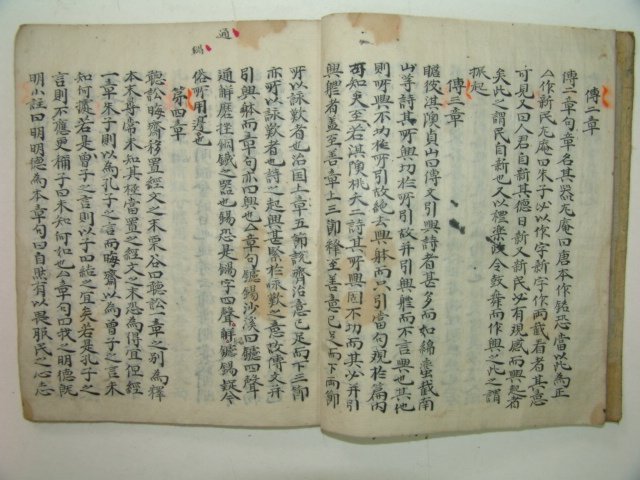 傳二章
傳二章句章名其器尤庵曰唐本作銘恐當以此為正
厶作新民尤庵曰朱子必以作字新字作兩截看者其意
可見又曰人君自新其德日新又新民必有現感而興起者
矣此之謂民自新也又以禮樂政令鼓舞而作興之此之謂
振起
傳三章
瞻彼淇澳貞山曰傳文引興詩者甚多而如綿蠻截南
山等詩其所興切於所引故并引興體而不言興也其他
則所興不切於所引故絶去興體而只引當句現於篇內
可知矣至若淇澳桃夭二詩其所興因不切而其必并引
興體者盖至善章上三節釋至善意已足而下兩節
所以詠歎者也治国上章五節説齊治意已足而下三節
亦所以詠歎者也詩之起興甚緊於詠歎之意故傳文并
引興體而章句亦曰興也厶章句鑢錫沙溪曰鑢四聲
通解磨挫銅鐵之器也錫恐是鐋字四聲解鑢鐋錠今
俗所用邊也
第四章
聽訟晦齋移置經文之末栗谷曰聽訟一章之別為釋
本末尋常未知其極當置之經文之末恐為得宜但經
一章朱子則以為孔子之言而晦齋以為曾子之言未
知如何據若是曾子之言則以子曰結之宜矣若是孔子之
言則不應更稱子曰未知何如也厶章句曰我之明德既
明小註曰明明德為本章句曰自然有以畏服民之心志